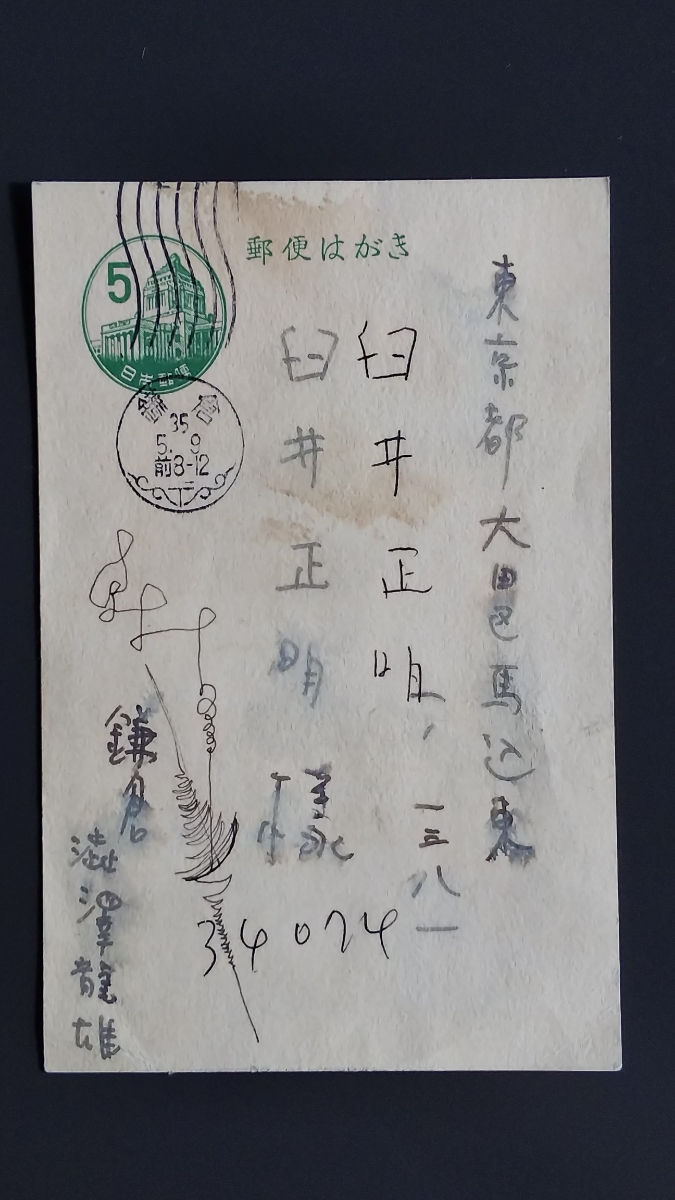 郵便はがき
5
日本郵便
鎌倉
35
5. 9
前8-12
東京都大田区馬込東
一三八一
臼井正明
臼井正明様
鎌倉
澁澤龍雄
34074